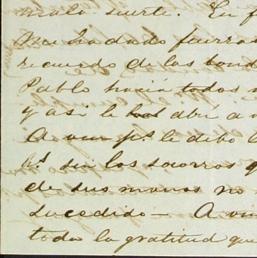 mala suerte. En f
me ha dado fuerzas
recuerdo de las bond
Pablo hacia todos n
y asi le abri a
A vm p.s le debo l
sin los socorros q
de sus manos no
sucedido — A vm
toda la gratitud que